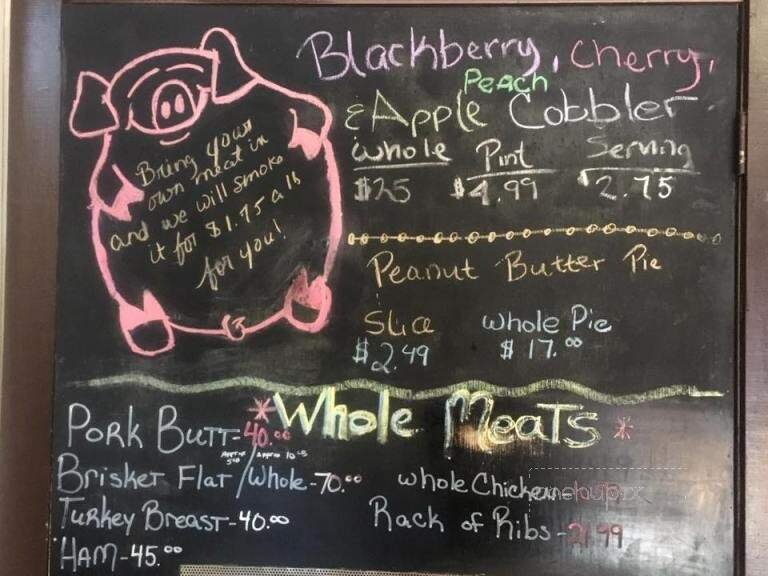 Bring your
own meat in
and we will smoke
it for $1.75 a lb
for you!
Blackberry, Cherry,
Peach
& Apple Cobbler
Whole Pint Serving
$25 $4.99 $2.75
Peanut Butter Pie
Slice Whole Pie
$2.49 $17.00
*Whole Meats*
Pork Butt-40.00
Brisket Flat/Whole-70.00
Turkey Breast-40.00
Ham-45.00
whole Chicken-
Rack of Ribs-21.99